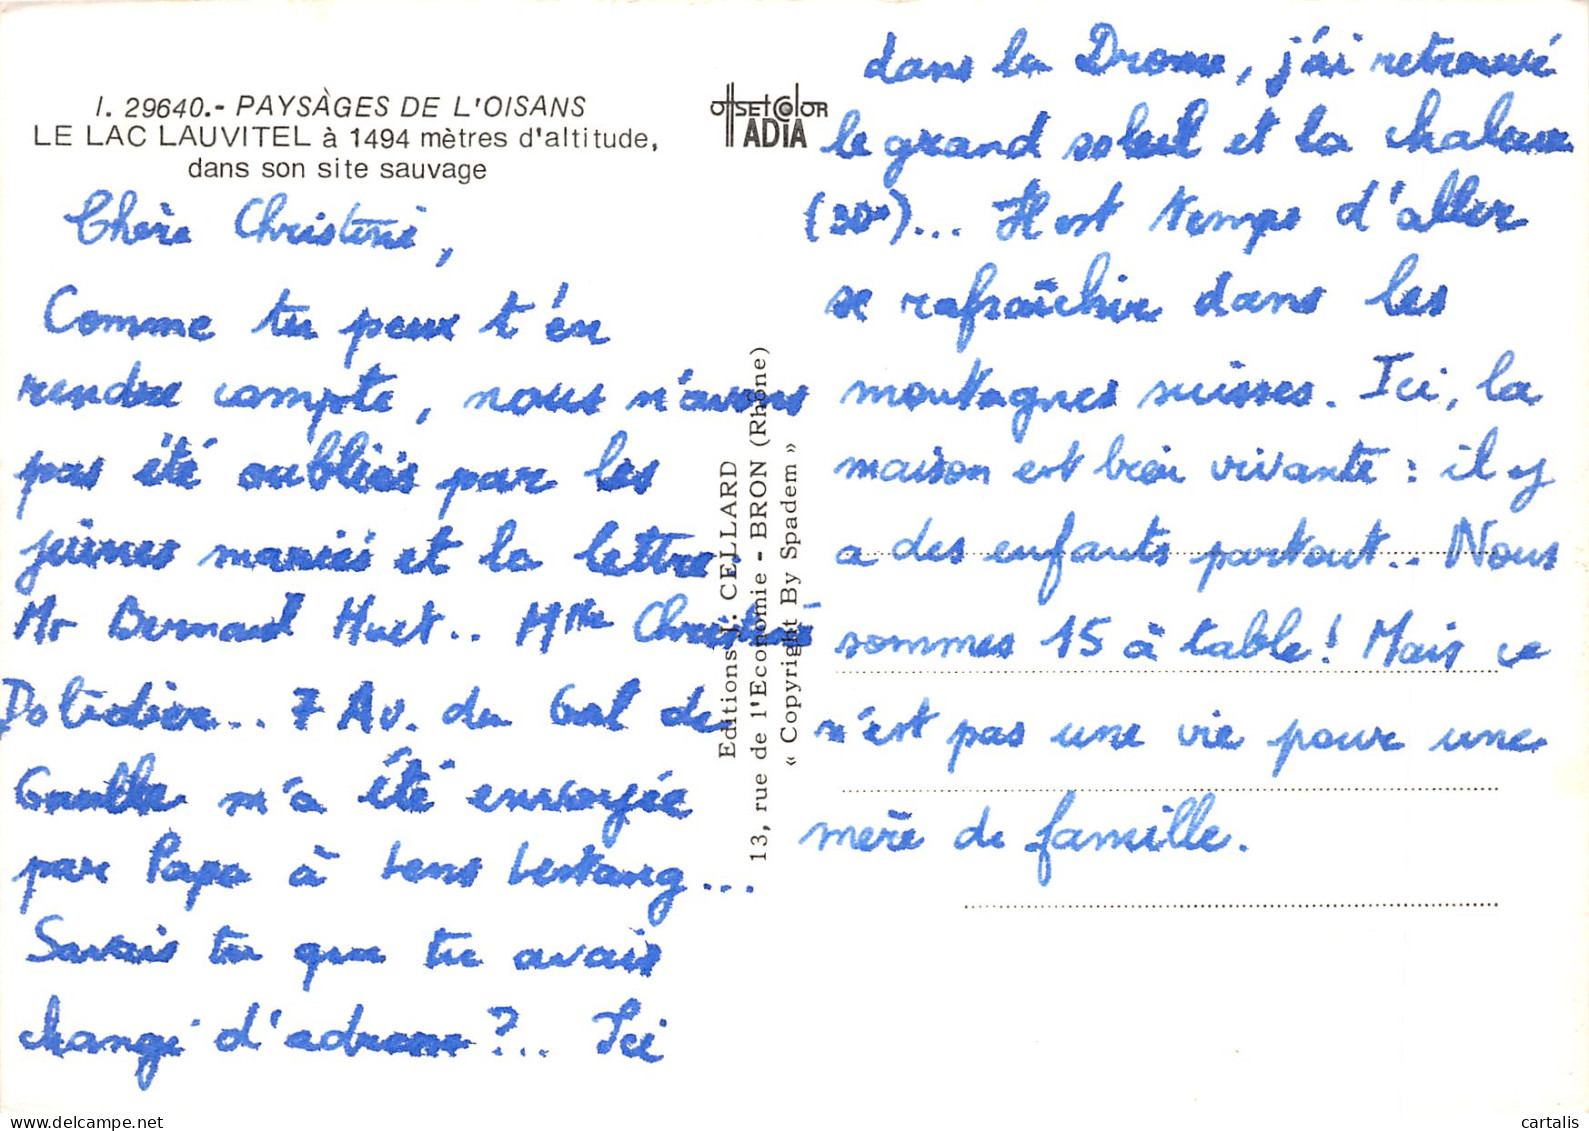 I. 29640.- PAYSAGES DE L'OISANS
LE LAC LAUVITEL à 1494 mètres d'altitude,
dans son site sauvage
OffSETColOR
ADIA
Chère Christine,
Comme tu peux t'en
rendre compte, nous n'avons
pas été oubliés par les
jeunes mariés et la lettre
Mr Bernard Huet.. Mme Christine
7 Av. du Gal de
Gaulle m'a été envoyée
par Papa à Lens Lestang...
Savais tu que tu avais
changé d'adresse?... Ici
dans la Drome, j'ai retrouvé
le grand soleil et la chaleur
(30°)... Il est temps d'aller
se rafraîchir dans les
montagnes suisses. Ici, la
maison est bien vivante : il y
a des enfants partout.. Nous
sommes 15 à table! Mais ce
n'est pas une vie pour une
mère de famille.
Editions J. CELLARD
13, rue de l'Economie - BRON (Rhône)
« Copyright By Spadem »
cartalis